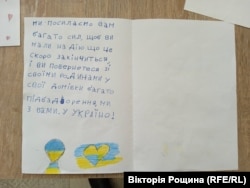 ми посилаємо вам
багато сил, щоб ви
мали надію що це
скоро закінчиться
і ви повернетеся з
своїми родинами у
свої домівки багато
підбадьорення, ми
з вами, у Україно!
Вікторія Рощина (RFE/RL)